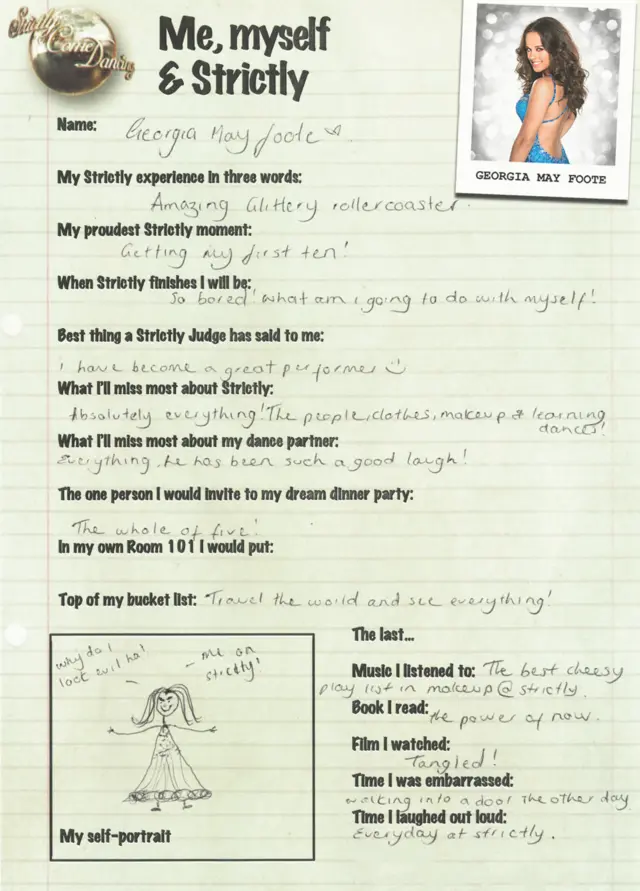 Strictly
Come
Dancing
Me, myself
& Strictly
GEORGIA MAY FOOTE
Name: Georgia May Foote
My Strictly experience in three words:
Amazing Glittery rollercoaster.
My proudest Strictly moment:
Getting my first ten!
When Strictly finishes I will be:
So bored! what am i going to do with myself!
Best thing a Strictly Judge has said to me:
i have become a great performer
What I'll miss most about Strictly:
Absolutely everything! The people, clothes, makeup & learning
dances!
What I'll miss most about my dance partner:
Everything. he has been such a good laugh!
The one person I would invite to my dream dinner party:
The whole of five!
In my own Room 101 I would put:
Top of my bucket list: Travel the world and see everything!
why do I
look evil ha!
- me on
strictly!
My self-portrait
The last...
Music I listened to: The best cheesy
play list in makeup @ strictly.
Book I read: the power of now.
Film I watched:
Tangled!
Time I was embarrassed:
walking into a door the other day
Time I laughed out loud:
Everyday at strictly.